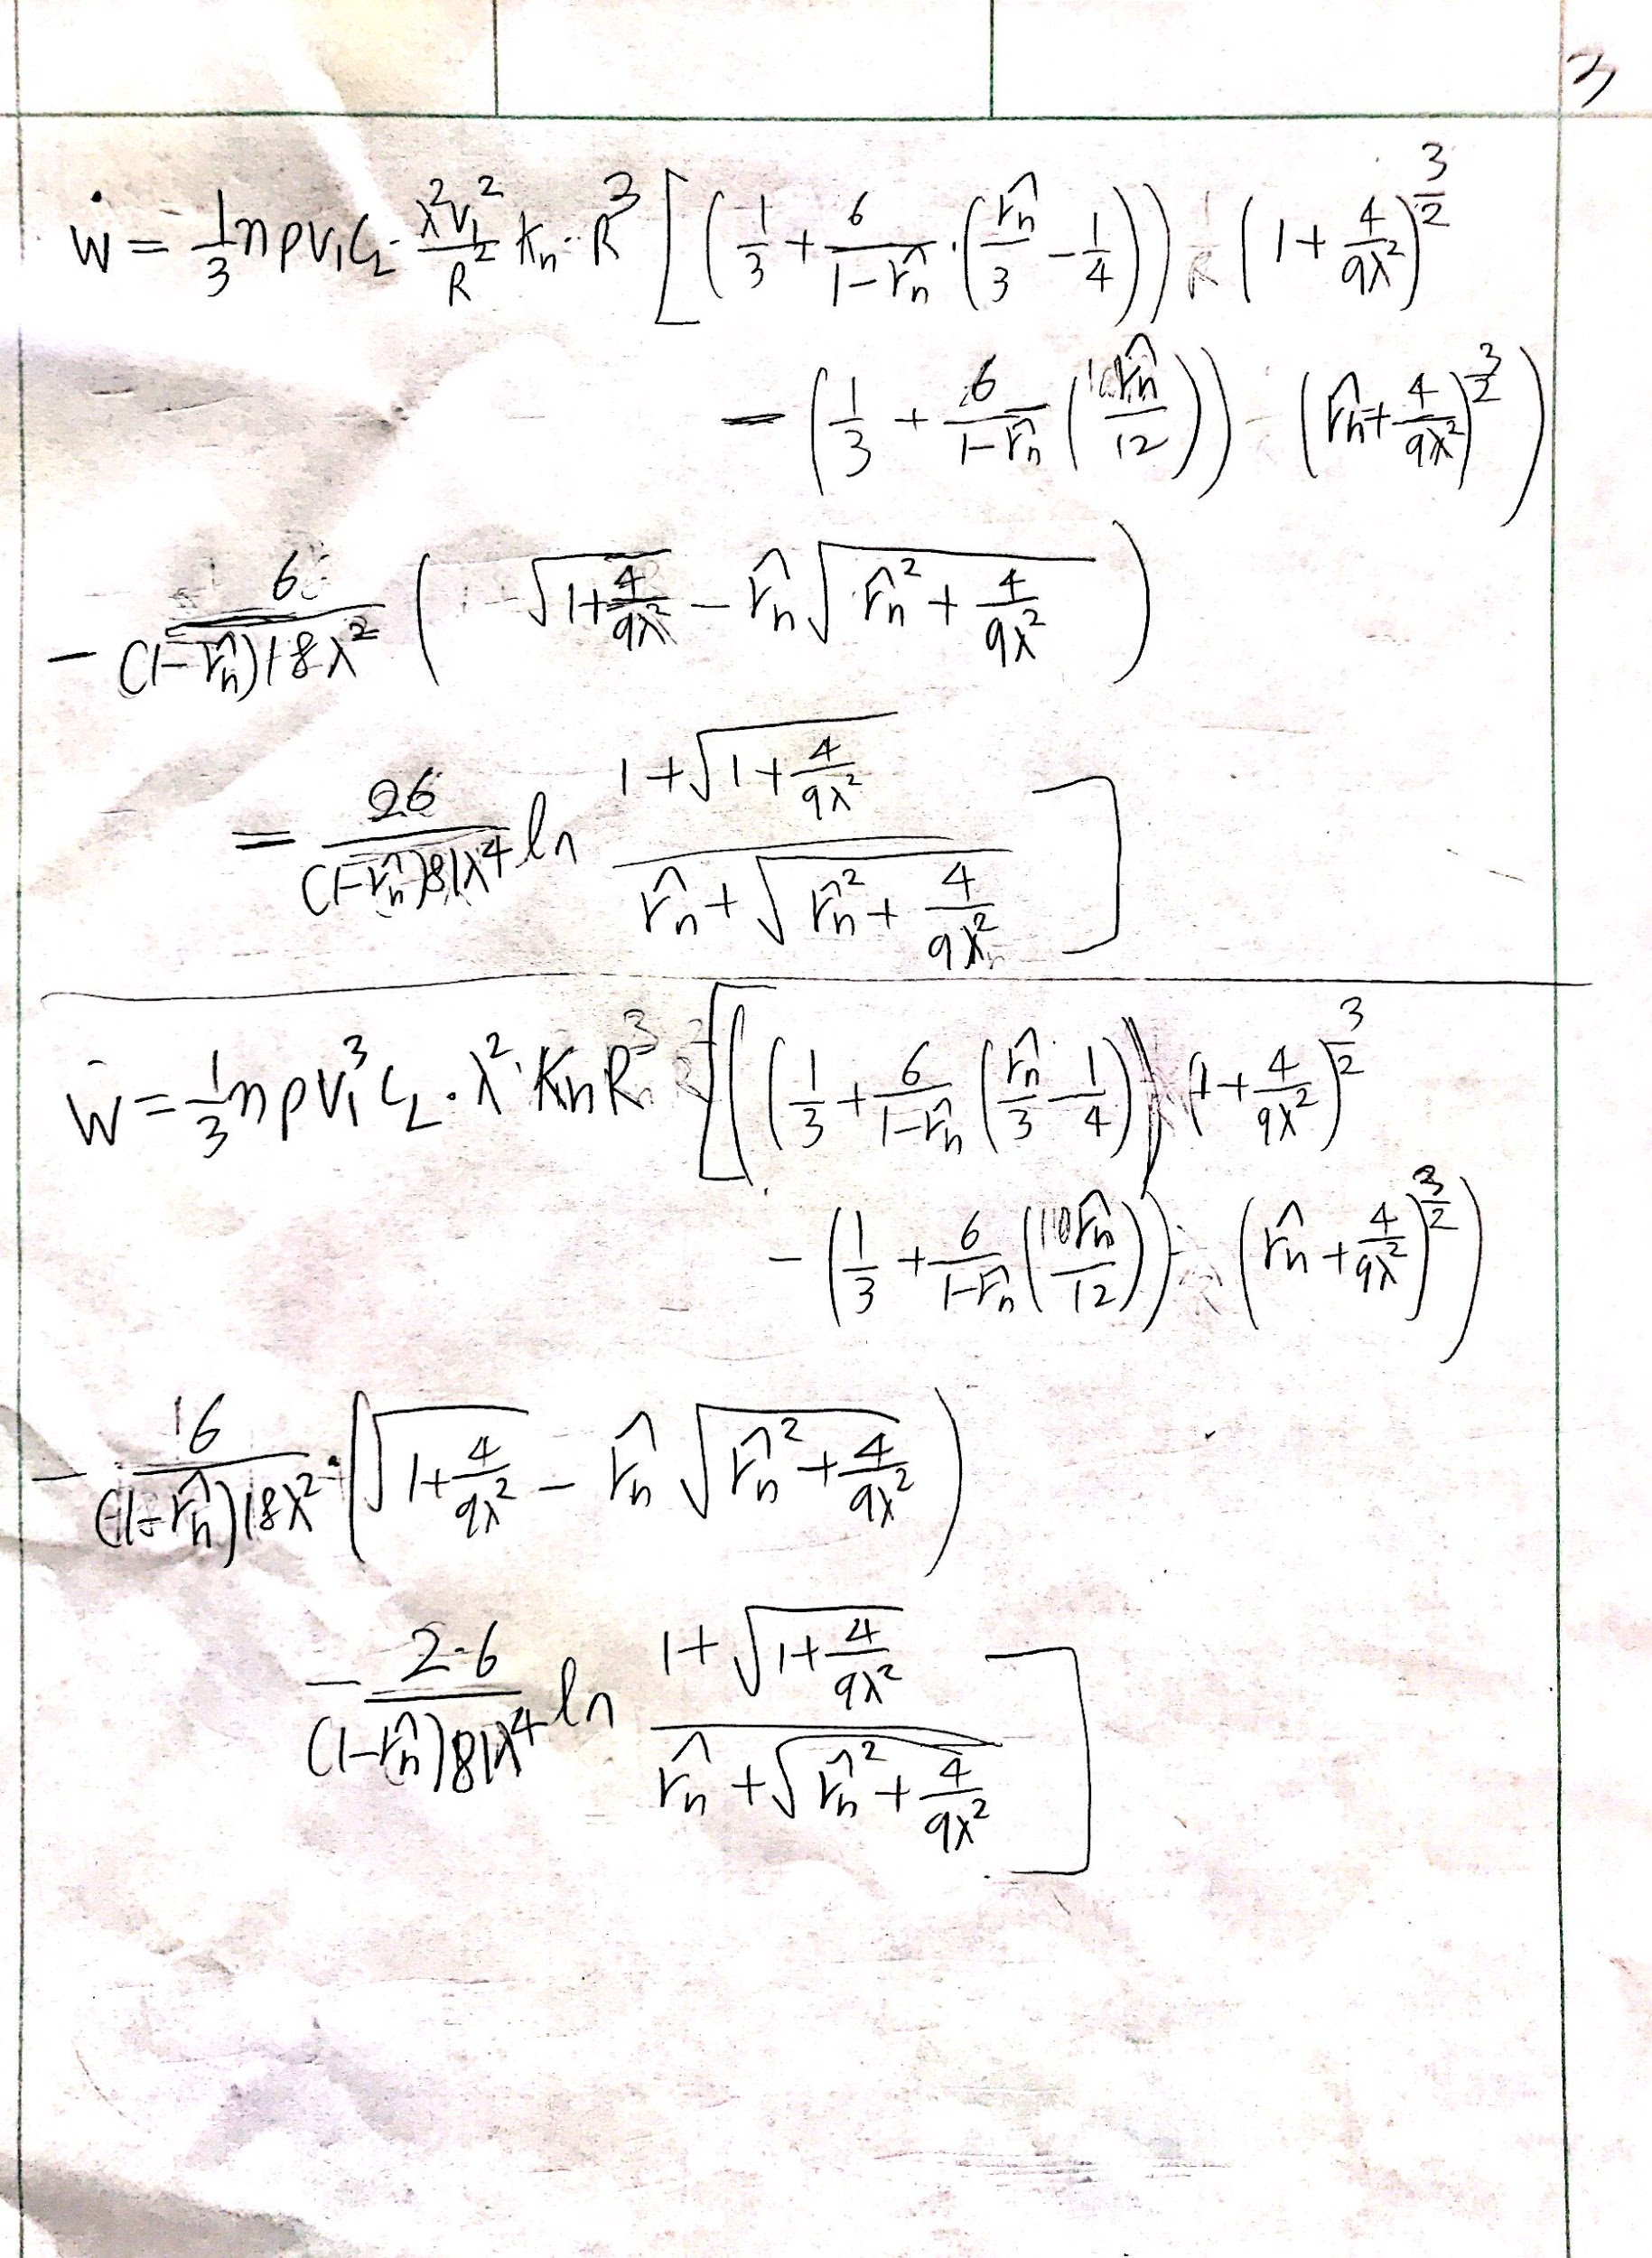 3
Ẇ = 1/3 nρV₁C_L · λ²V₁²/R² Kₙ · R³ [ ( 1/3 + 6/(1−r̂ₙ) · ( r̂ₙ/3 − 1/4 ) ) ( 1 + 4/9λ² )^(3/2)
− ( 1/3 + 6/(1−r̂ₙ) ( r̂ₙ/12 ) ) ( r̂ₙ + 4/9λ² )^(3/2) )
− 6/((1−r̂ₙ)18λ²) ( √(1 + 4/9λ²) − r̂ₙ √(r̂ₙ² + 4/9λ²) )
= 26/((1−r̂ₙ)81λ⁴) ln (1 + √(1 + 4/9λ²))/(r̂ₙ + √(r̂ₙ² + 4/9λ²)) ]
Ẇ = 1/3 nρV₁³C_L · λ² · KₙR³ [ ( ( 1/3 + 6/(1−r̂ₙ) ( r̂ₙ/3 − 1/4 ) ) ( 1 + 4/9λ² )^(3/2)
− ( 1/3 + 6/(1−r̂ₙ) ( r̂ₙ/12 ) ) ( r̂ₙ + 4/9λ² )^(3/2) )
− 6/((1−r̂ₙ)18λ²) · ( √(1 + 4/9λ²) − r̂ₙ √(r̂ₙ² + 4/9λ²) )
− 2·6/((1−r̂ₙ)81λ⁴) ln (1 + √(1 + 4/9λ²))/(r̂ₙ + √(r̂ₙ² + 4/9λ²)) ]